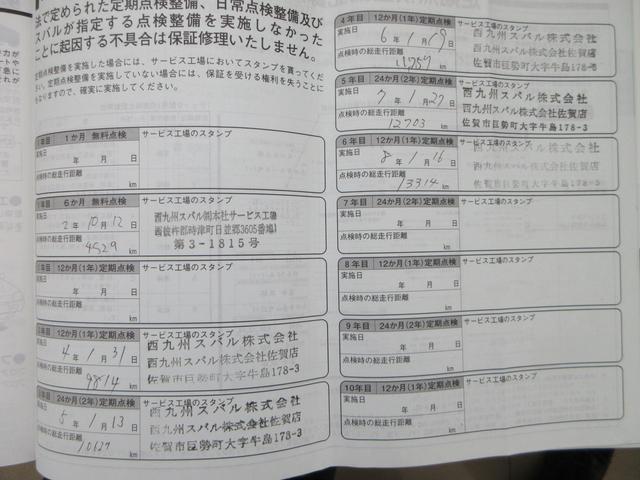 法で定められた定期点検整備、日常点検整備及び
スバルが指定する点検整備を実施しなかった
ことに起因する不具合は保証修理いたしません。
定期点検整備を実施した場合には、サービス工場においてスタンプを貰ってくだ
さい。定期点検整備を実施していない場合には、保証を受ける権利を失うことに
なりますので、確実に実施してください。
1か月 無料点検
サービス工場のスタンプ
実施日
年 月 日
点検時の総走行距離
km
6か月 無料点検
サービス工場のスタンプ
実施日
2年 10月 12日
点検時の総走行距離
4529 km
西九州スバル㈱本社サービス工場
西彼杵郡時津町日並郷3605番地1
第3-1815号
12か月(1年)定期点検
サービス工場のスタンプ
実施日
年 月 日
点検時の総走行距離
km
12か月(1年)定期点検
サービス工場のスタンプ
実施日
4年 1月 31日
点検時の総走行距離
9814 km
西九州スバル株式会社
西九州スバル株式会社佐賀店
佐賀市巨勢町大字牛島178-3
24か月(2年)定期点検
サービス工場のスタンプ
実施日
5年 1月 13日
点検時の総走行距離
10627 km
西九州スバル株式会社
西九州スバル株式会社佐賀店
佐賀市巨勢町大字牛島178-3
4年目 12か月(1年)定期点検
サービス工場のスタンプ
実施日
6年 1月 19日
点検時の総走行距離
km
西九州スバル株式会社
西九州スバル株式会社佐賀店
佐賀市巨勢町大字牛島178-3
5年目 24か月(2年)定期点検
サービス工場のスタンプ
実施日
7年 1月 27日
点検時の総走行距離
12703 km
西九州スバル株式会社
西九州スバル株式会社佐賀店
佐賀市巨勢町大字牛島178-3
6年目 12か月(1年)定期点検
サービス工場のスタンプ
実施日
8年 1月 16日
点検時の総走行距離
13314 km
西九州スバル株式会社
西九州スバル株式会社佐賀店
佐賀市巨勢町大字牛島178-3
7年目 24か月(2年)定期点検
サービス工場のスタンプ
実施日
年 月 日
点検時の総走行距離
km
8年目 12か月(1年)定期点検
サービス工場のスタンプ
実施日
年 月 日
点検時の総走行距離
km
9年目 24か月(2年)定期点検
サービス工場のスタンプ
実施日
年 月 日
点検時の総走行距離
km
10年目 12か月(1年)定期点検
サービス工場のスタンプ
実施日
年 月 日
点検時の総走行距離
km